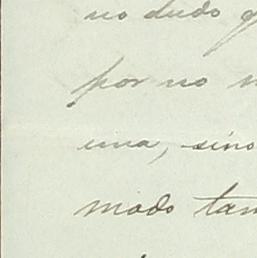 no dudo
por no
una, sino
modo tan